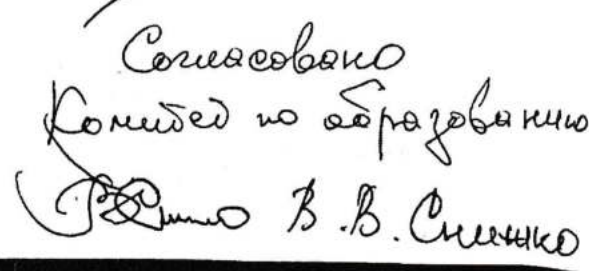 Согласовано
Комитет по образованию
В.В. Снишко